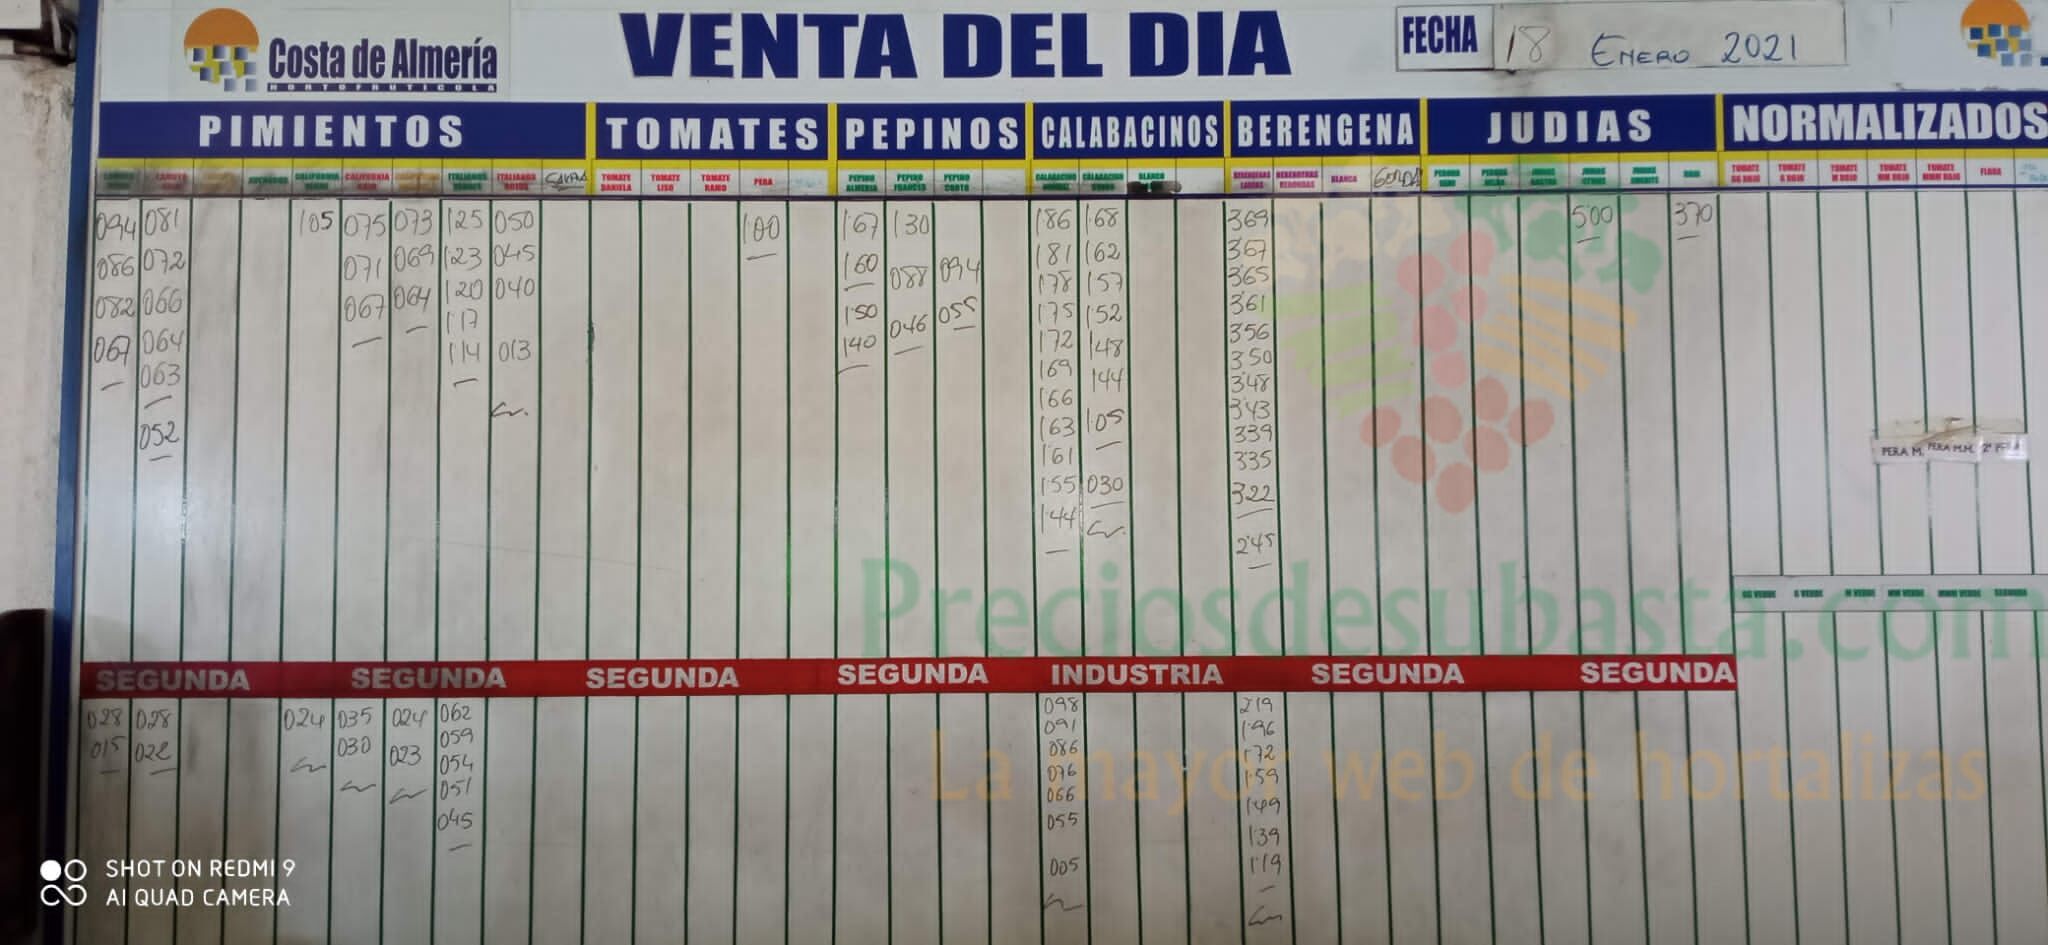 Costa de Almería
HORTOFRUTICOLA
VENTA DEL DIA
FECHA 18 ENERO 2021
PIMIENTOS TOMATES PEPINOS CALABACINOS BERENGENA JUDIAS NORMALIZADOS
CALIFORNIA CALIFORNIA ITALIANOS ITALIANOS TOMATE DANIELA TOMATE LISO TOMATE RAMO PERA PEPINO ALMERIA PEPINO FRANCES PEPINO CORTO CALABACINO CALABACINO BLANCO BERENGENAS LARGAS BERENGENAS REDONDAS BLANCA GORDA TOMATE GG ROJO TOMATE G ROJO TOMATE M ROJO TOMATE MM ROJO TOMATE MMM ROJO FLOJA
094 081 105 075 073 125 050 100 167 130 186 168 369 500 370
086 072 071 069 123 045 160 088 094 181 162 367
082 066 067 064 120 040 150 046 055 178 157 365
067 064 117 013 140 175 152 361
063 114 172 148 356
052 169 144 350
166 105 348
163 030 343
161 339
155 335
144 322
245
PERA M. PERA M.M. 2ª
GG VERDE G VERDE M VERDE MM VERDE MMM VERDE SEGUNDA
Preciosdesubasta.com
La mayor web de hortalizas
SEGUNDA SEGUNDA SEGUNDA SEGUNDA INDUSTRIA SEGUNDA SEGUNDA
028 028 024 035 024 062 098 219
015 022 030 023 059 091 196
054 086 172
051 076 159
045 066 149
055 139
005 119
SHOT ON REDMI 9
AI QUAD CAMERA